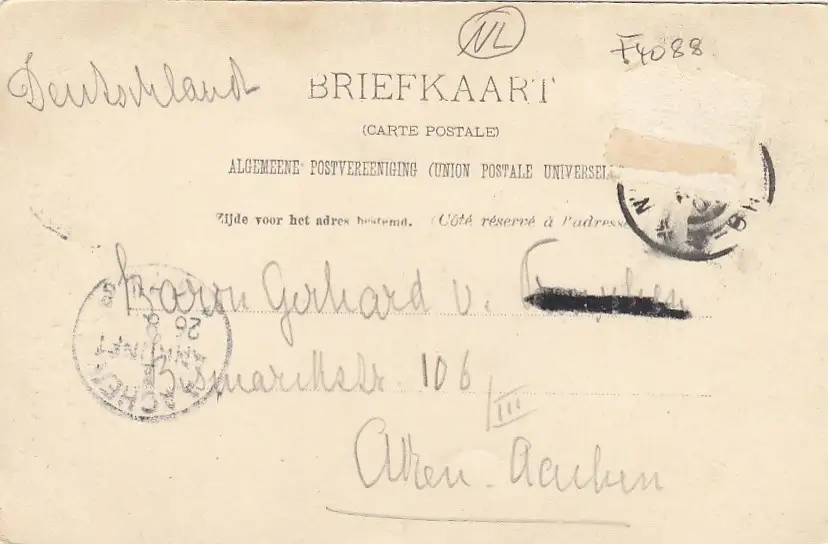 NL
F4088
Deutschland
BRIEFKAART
(CARTE POSTALE)
ALGEMEENE POSTVEREENIGING (UNION POSTALE UNIVERSEL
Zijde voor het adres bestemd. (Côté réservé à l'adresse
Baron Gerhard v.
Bismarckstr. 106
III
Aken-Aachen
AACHEN
ANKUNFT
26